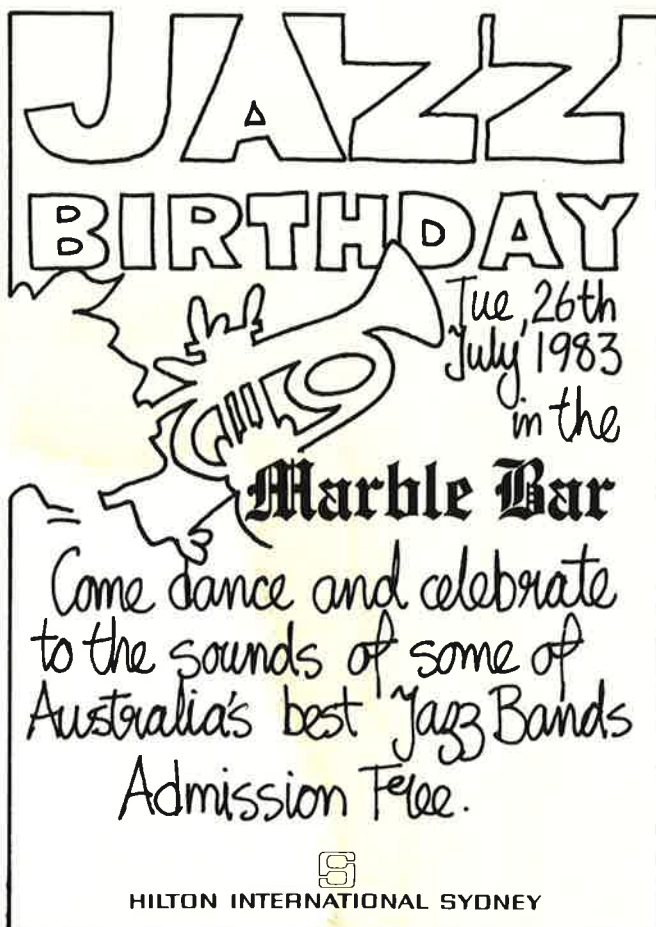 JAZZ
BIRTHDAY
Tue, 26th
July 1983
in the
Marble Bar
Come dance and celebrate
to the sounds of some of
Australia's best Jazz Bands
Admission Free.
HILTON INTERNATIONAL SYDNEY